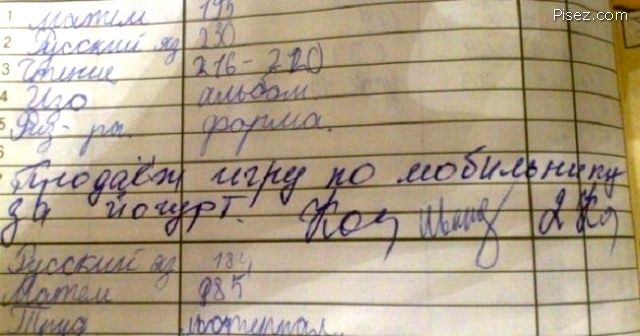 Pisez.com
1 Матем 195
2 Русский яз 230
3 Чтение 216-220
4 Изо альбом
5 Физ-ра. форма.
6
Продаёж игру по мобильнику
за йогурт.
Русский яз 184
Матем 985
Труд материал.